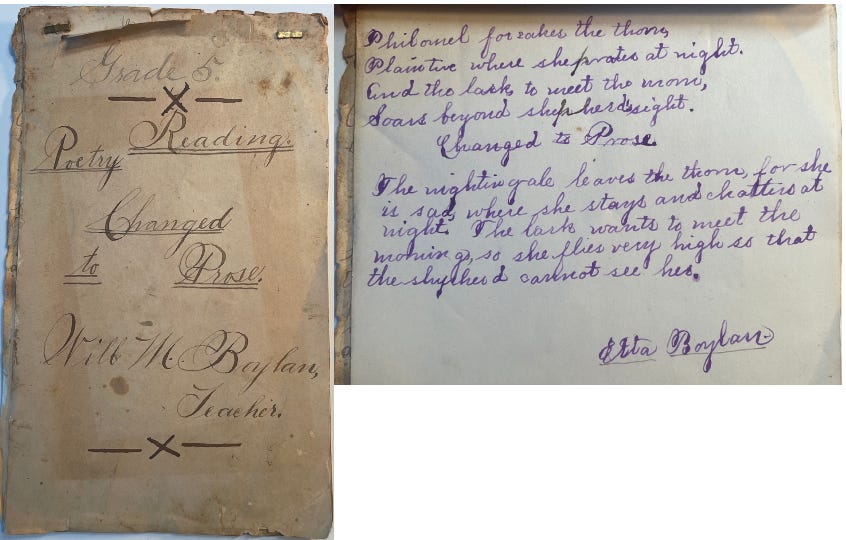 Grade 5.
Reading.
Poetry
Changed
to Prose.
Will M. Boylan,
Teacher.
Philomel forsakes the thorn,
Plaintive where she prates at night.
And the lark to meet the morn,
Soars beyond shepherd's sight.
Changed to Prose
The nightingale leaves the thorn, for she
is sad, where she stays and chatters at
night. The lark wants to meet the
morning, so she flies very high so that
the shepherd cannot see her.
Etta Boylan